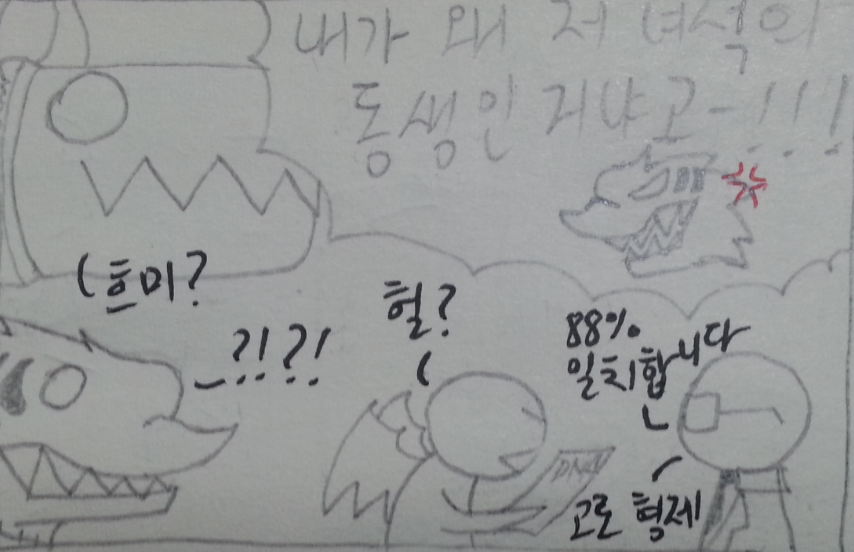 내가 왜 저 녀석의
동생인 거냐고-!!!
흐미?
?!?!
헐?
88%
일치합니다
DNA
고로 형제